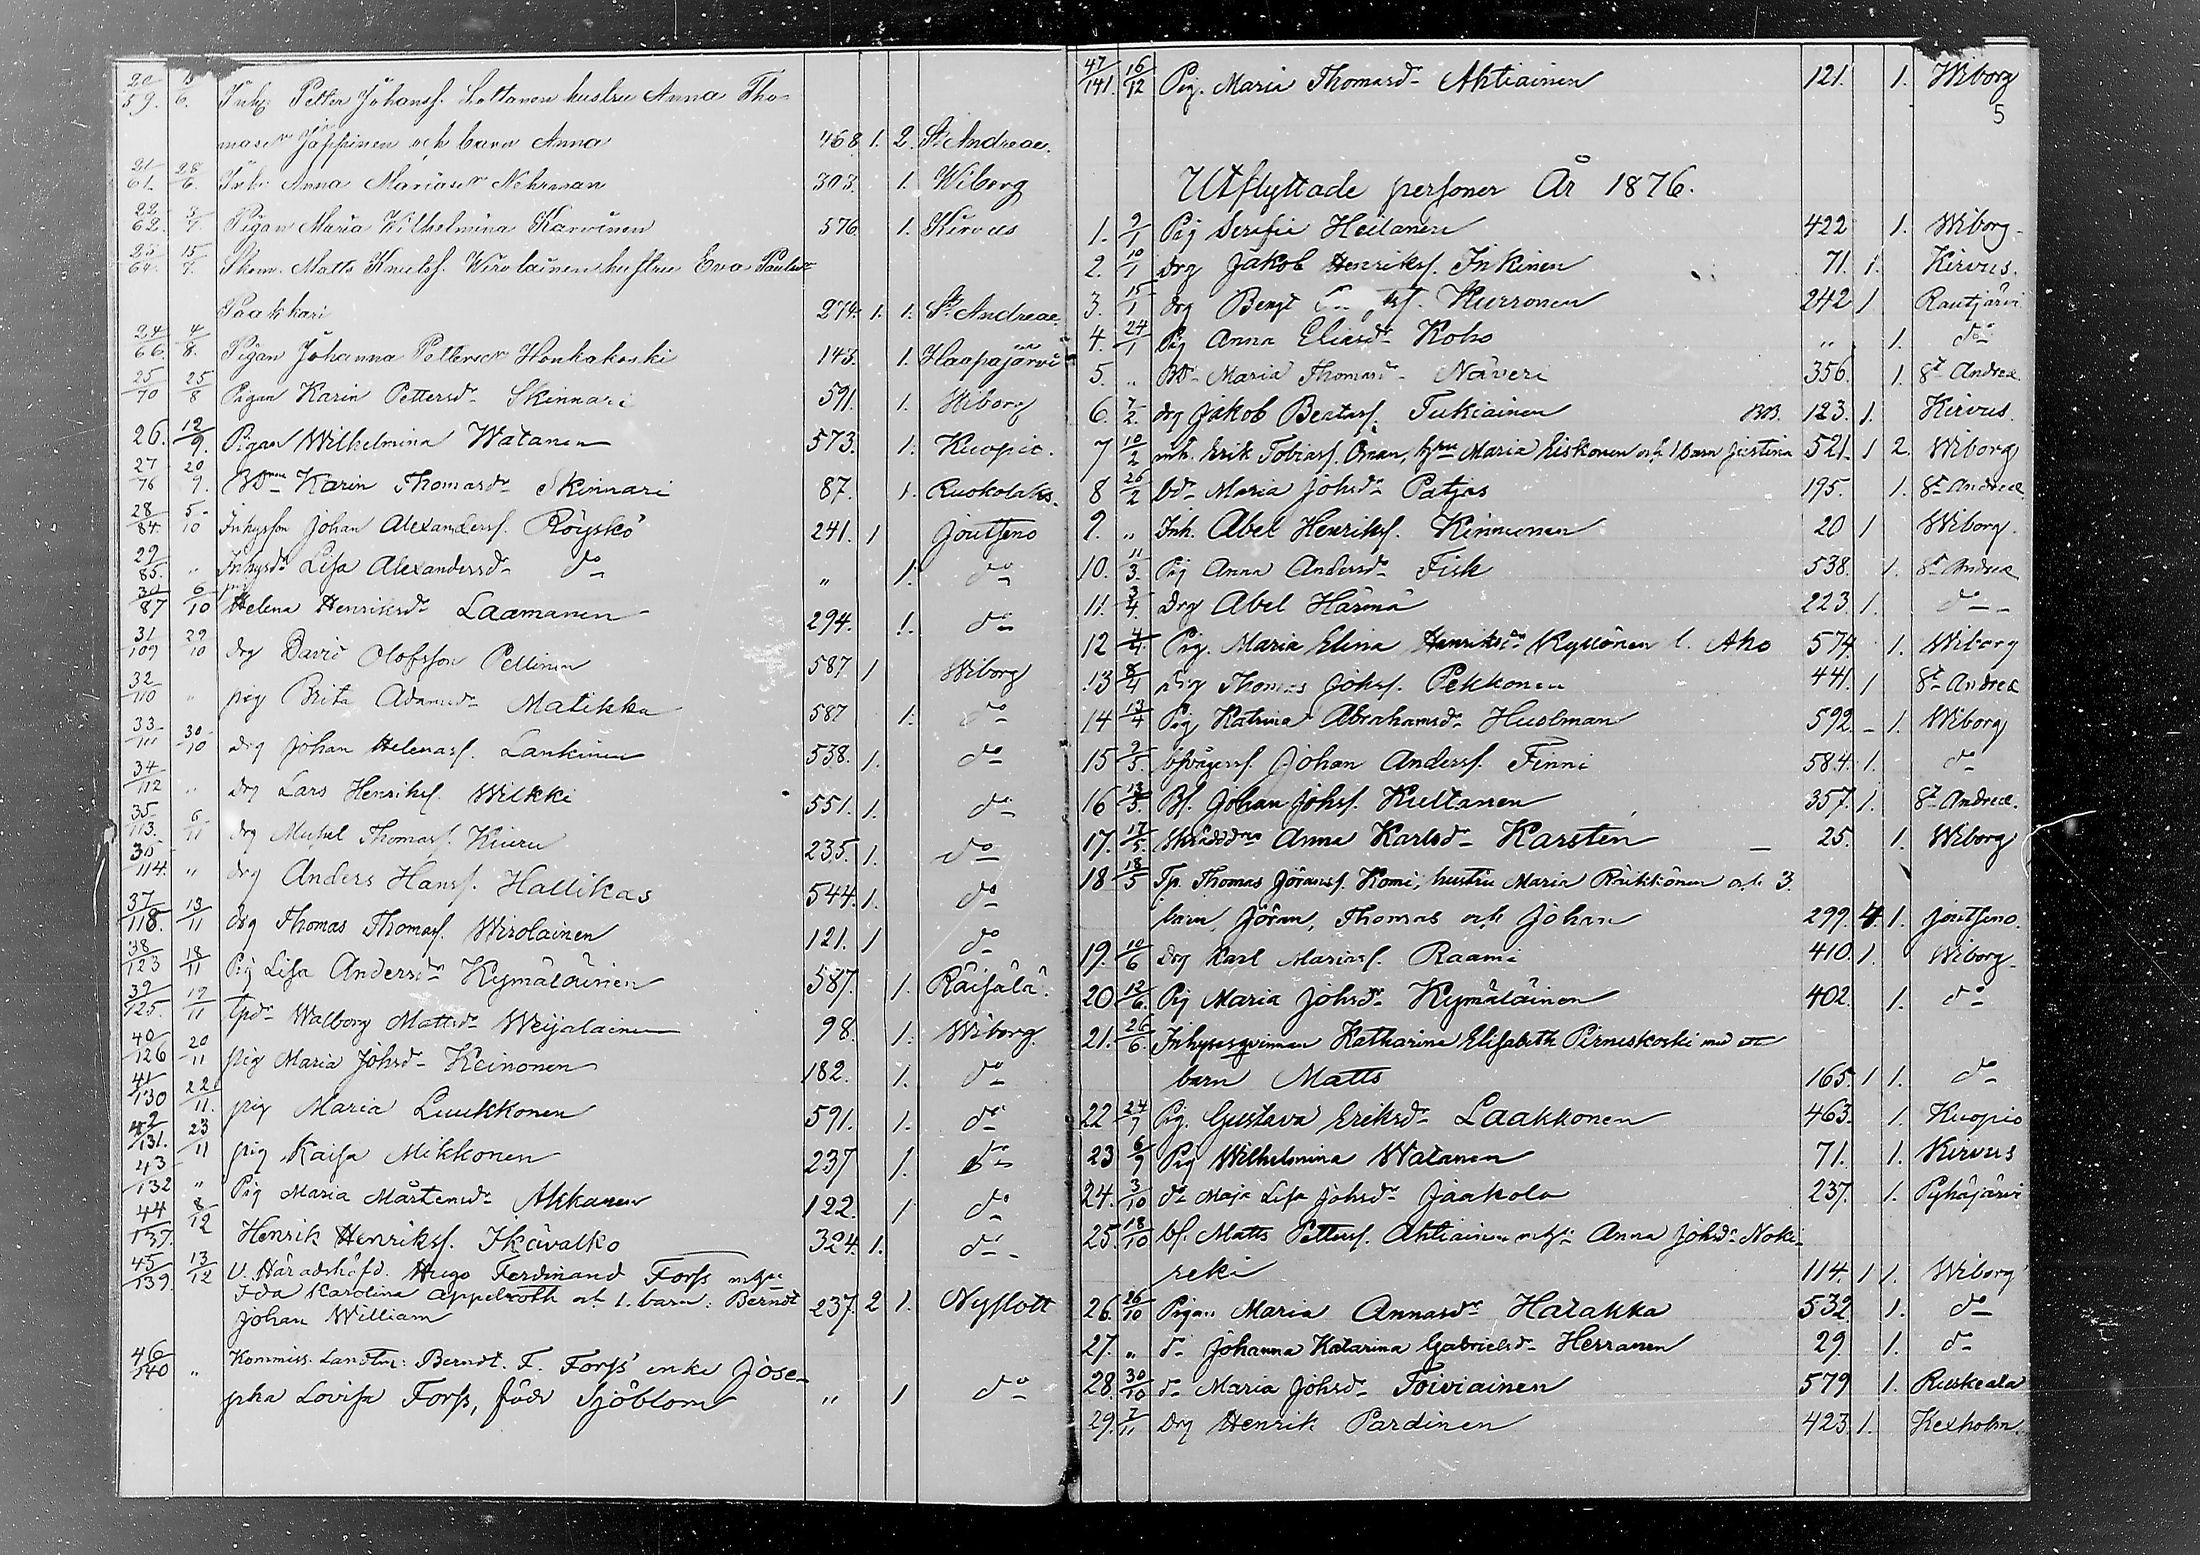 20/59. 6. Inh: Petter Johansf. Lottanen hustru Anna Tho-
masdr Jäppinen och barn Anna 468 1. 2. St Andreae.
21/61. 28/6. Inh: Anna Mariasdr Nehrman 303. 1. Wiborg
22/62. 3/7. Pigan Maria Wilhelmina Karvinen 576 1. Kirvus
23/64. 15/7. Skom. Matts Knutsf. Wirolainen hustru Eva Paulsdr
Paakkari 274. 1. 1. St Andreae.
24/66. 4/8. Pigan Johanna Pettersdr Honkakoski 143. 1. Haapajärvi
25/70 25/8 Pigan Karin Pettersdr Skinnari 591. 1. Wiborg
26. 12/9. Pigan Wilhelmina Watanen 573. 1. Kuopio.
27/76 20/9. Karin Thomasdr Skinnari 87. 1. Ruokolaks.
28/84. 5/10 Inhysson Johan Alexandersf. Röyskö 241. 1 Joutseno
29/85. " Inhysdr Lisa Alexandersdr do " 1. do
30/87 6/10 Helena Henriksdr Laamanen 294. 1. do
31/109 29/10 drg David Olofsson Pellinen 587 1 Wiborg
32/110 " pig Brita Adamsdr Matikka 587 1. do
33/111 30/10 drg Johan Helenasf. Lankinen 538. 1. do
34/112 " drg Lars Henriksf. Wilkki 551. 1. do
35/113. 6/11 drg Mickel Thomasf. Kiuru 235. 1. do
36/114. " drg Anders Hansf. Hallikas 544. 1. do
37/118. 13/11 drg Thomas Thomasf. Wirolainen 121. 1 do
38/123 18/11 Pig Lisa Andersdr Kymäläinen 587. 1. Räisälä.
39/125. 19/11 tpdr Walborg Mattsdr Weijalainen 98. 1. Wiborg.
40/126 20/11 pig Maria Johsdr Keinonen 182. 1. do
41/130 22/11. pig Maria Luukkonen 591. 1. do
42/131. 23/11 pig Kaisa Mikkonen 237 1. do
43/132 " Pig Maria Mårtensdr Akkanen 122. 1 do
44/137. 8/12 Henrik Henriksf. Ikävalko 324. 1. do
45/139. 13/12 V. Häradshöfd. Hugo Ferdinand Forss m hu
Ida Karolina Appelroth och 1. barn: Berndt
Johan William 237. 2 1. Nyslott
46/140 " Kommiss. Landtm: Berndt. F. Forss' enka Jose-
pha Lovisa Forss, född Sjöblom " 1 do
47/141. 16/12 Pig. Maria Thomasdr Ahtiainen 121. 1. Wiborg
5
Utflyttade personer År 1876.
1. 9/1 Pig Serafia Heilanen 422 1. Wiborg
2. 10/1 drg Jakob Henriksf. Inkinen 71. 1. Kirvus.
3. 15/1 drg Bengt Kurronen 242 1 Rautjärvi
4. 24/1 Pig Anna Eliasdr Koho " 1. do
5. " Maria Thomasdr Näveri 356. 1. St Andreæ
6. 7/2. drg Jakob Beatasf. Tukiainen 123. 1. Kirvus.
7 10/2 inh. Erik Tobiasf. Oman, hustru Maria Eiskonen och 1 barn Justina 521. 1 2. Wiborg
8 26/2 bdr Maria Johsdr Patjas 195. 1. St Andreæ
9. " Inh. Abel Henriksf. Kinnunen 20 1 Wiborg.
10. 11/3. Pig Anna Andersdr Fisk 538. 1. St Andreæ
11. 3/4. drg Abel Härmä 223 1. do
12 4/4. Pig. Maria Elina Henriksdr Kyllönen l. Aho 574. 1. Wiborg
13 8/4 drg Thomas Johsf. Pekkonen 441. 1 St Andreæ
14 13/4 Pig Katrina Abrahamsdr Huolman 592. - 1. Wiborg
15 2/5. Johan Andersf. Finni 584. 1. do
16 13/5. Bf. Johan Johsf. Kultanen 357. 1. St Andreæ.
17. 17/5. Anna Karlsdr Karstén 25. 1. Wiborg
18 18/5 Tp. Thomas Jöransf. Komi, hustru Maria Pöikkönen och 3.
barn, Jöran, Thomas och Johan 299. 4. 1. Joutseno.
19. 10/6 drg Karl Mariasf. Raama 410. 1. Wiborg
20 12/6. Pig Maria Johsdr Kymäläinen 402. 1. do
21. 26/6. Inhysesqvinnan Katharina Elisabeth Pirneskoski med ett
barn Matts 165. 1 1. do
22 24/7 Pig. Gustava Eriksdr Laakkonen 463. 1. Kuopio
23 6/9 Pig Wilhelmina Watanen 71. 1. Kirvus
24. 3/10 do Maja Lisa Johsdr Jaakola 237. 1. Pyhäjärvi
25. 18/10 bf. Matts Pettersf. Ahtiainen m hu Anna Johsdr Noki-
reki 114. 1 1. Wiborg
26. 26/10 Pigan Maria Annasdr Hatakka 532 1. do
27. " do Johanna Katarina Gabrielsdr Herranen 29 1. do
28. 30/10 do Maria Johsdr Toiviainen 579 1. Ruskeala
29. 7/11 drg Henrik Pardinen 423. 1. Kexholm.